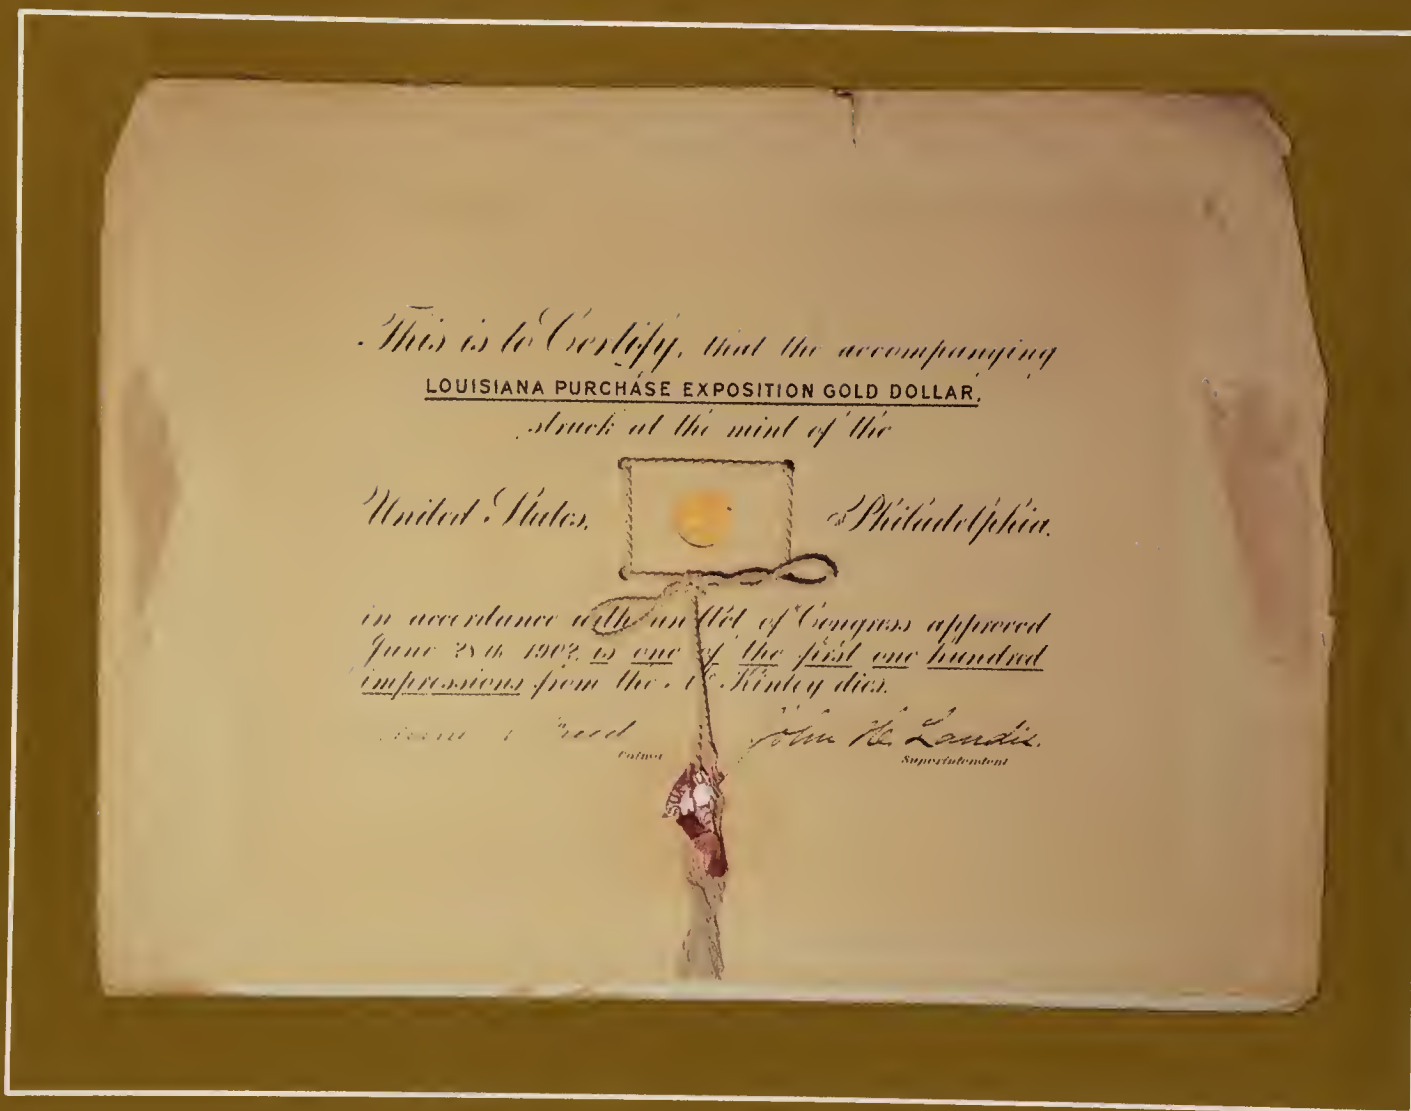 This is to Certify, that the accompanying
LOUISIANA PURCHASE EXPOSITION GOLD DOLLAR,
struck at the mint of the
United States, at Philadelphia.
in accordance with an Act of Congress approved
June 28th 1902, is one of the first one hundred
impressions from the McKinley dies.
John H. Landis.
Coiner
Superintendent